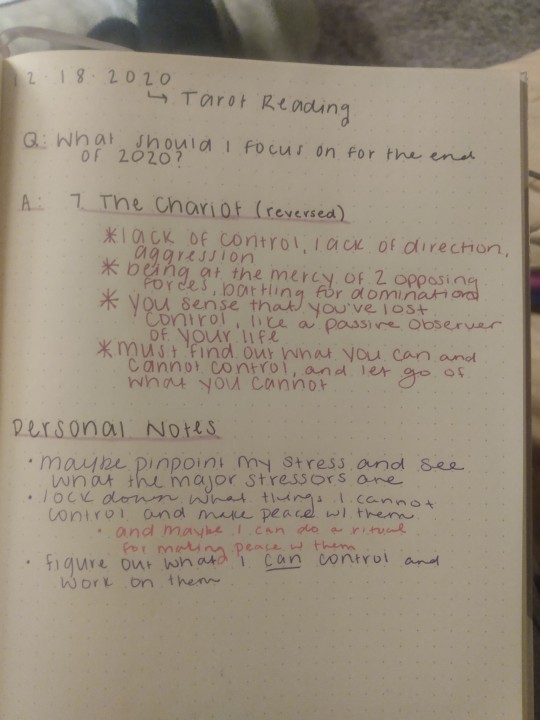 12·18·2020
↳ Tarot Reading
Q: What should I focus on for the end
of 2020?
A: 7. The Chariot (reversed)
*lack of control, lack of direction,
aggression
* being at the mercy of 2 opposing
forces, battling for domination
* you sense that you've lost
control, like a passive observer
of your life
*must find out what you can and
cannot control, and let go of
what you cannot
Personal Notes
• maybe pinpoint my stress and see
what the major stressors are
• lock down what things I cannot
control and make peace w/ them
• and maybe I can do a ritual
for making peace w them
• figure out what I can control and
work on them